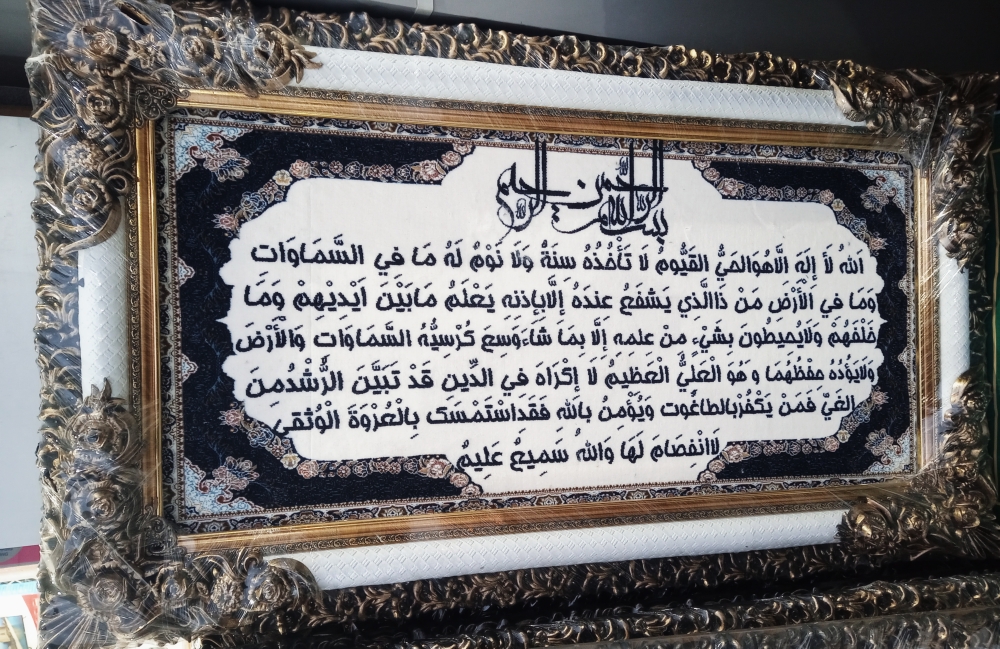 بسم الله الرحمن الرحيم
اللهُ لاَ إِلَهَ الَّاهُوَالحَيُّ القَيُّوم لَا تَأْخُذُهُ سِنَةٌ وَلَا نَوْمٌ لَهُ مَا في السَّمَاوَات
وَمَا في الْأَرْضِ مَن ذَاالَّذي يَشفَعُ عندَهُ إِلَّابِإذنِهِ يَعْلَمُ مَابَيْنَ اَيديْهِمْ وَمَا
خَلْفَهُمْ وَلَايُحيَطُون بشَيْءٍ منْ علمه إِلَّا بِمَا شَاءَوَسعَ كُرْسيُّهُ السَّمَاوَات وَالْأَرْضَ
وَلَايَؤُدُهُ حفْظُهُمَا وَهُوَ الْعَلِيُّ الْعَظِيمُ لَا إكْرَاهَ في الدِّين قَدْ تَبَيَّنَ الرُّشْدُمِنَ
الغَيِّ فَمَنْ يَكْفُرْبالطاغُوت وَيُؤْمِنُ بالله فَقَدَاسْتَمْسَكَ بِالْعُرْوَةِ الْوُثقىَ
لَاانْفِصَامَ لَهَا وَاللهُ سَمِيعٌ عَلِيمٌ